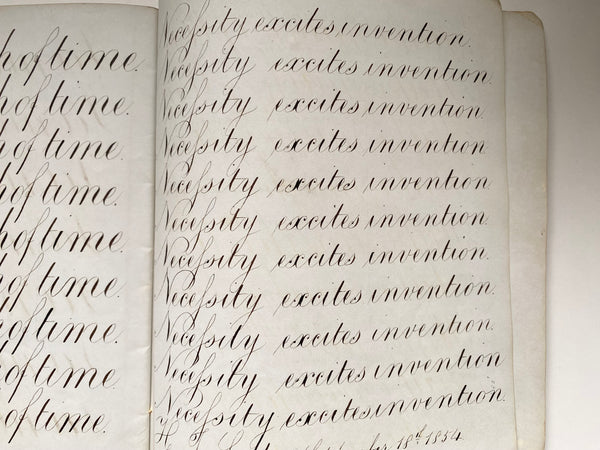 h of time.
h of time.
h of time.
h of time.
h of time.
h of time.
h of time.
h of time.
h of time.
Neceſsity excites invention.
Neceſsity excites invention.
Neceſsity excites invention.
Neceſsity excites invention
Neceſsity excites invention
Neceſsity excites invention.
Neceſsity excites invention.
Neceſsity excites invention.
Neceſsity excites invention.
Neceſsity excites invention
Neceſsity excites invention.
18th 1854